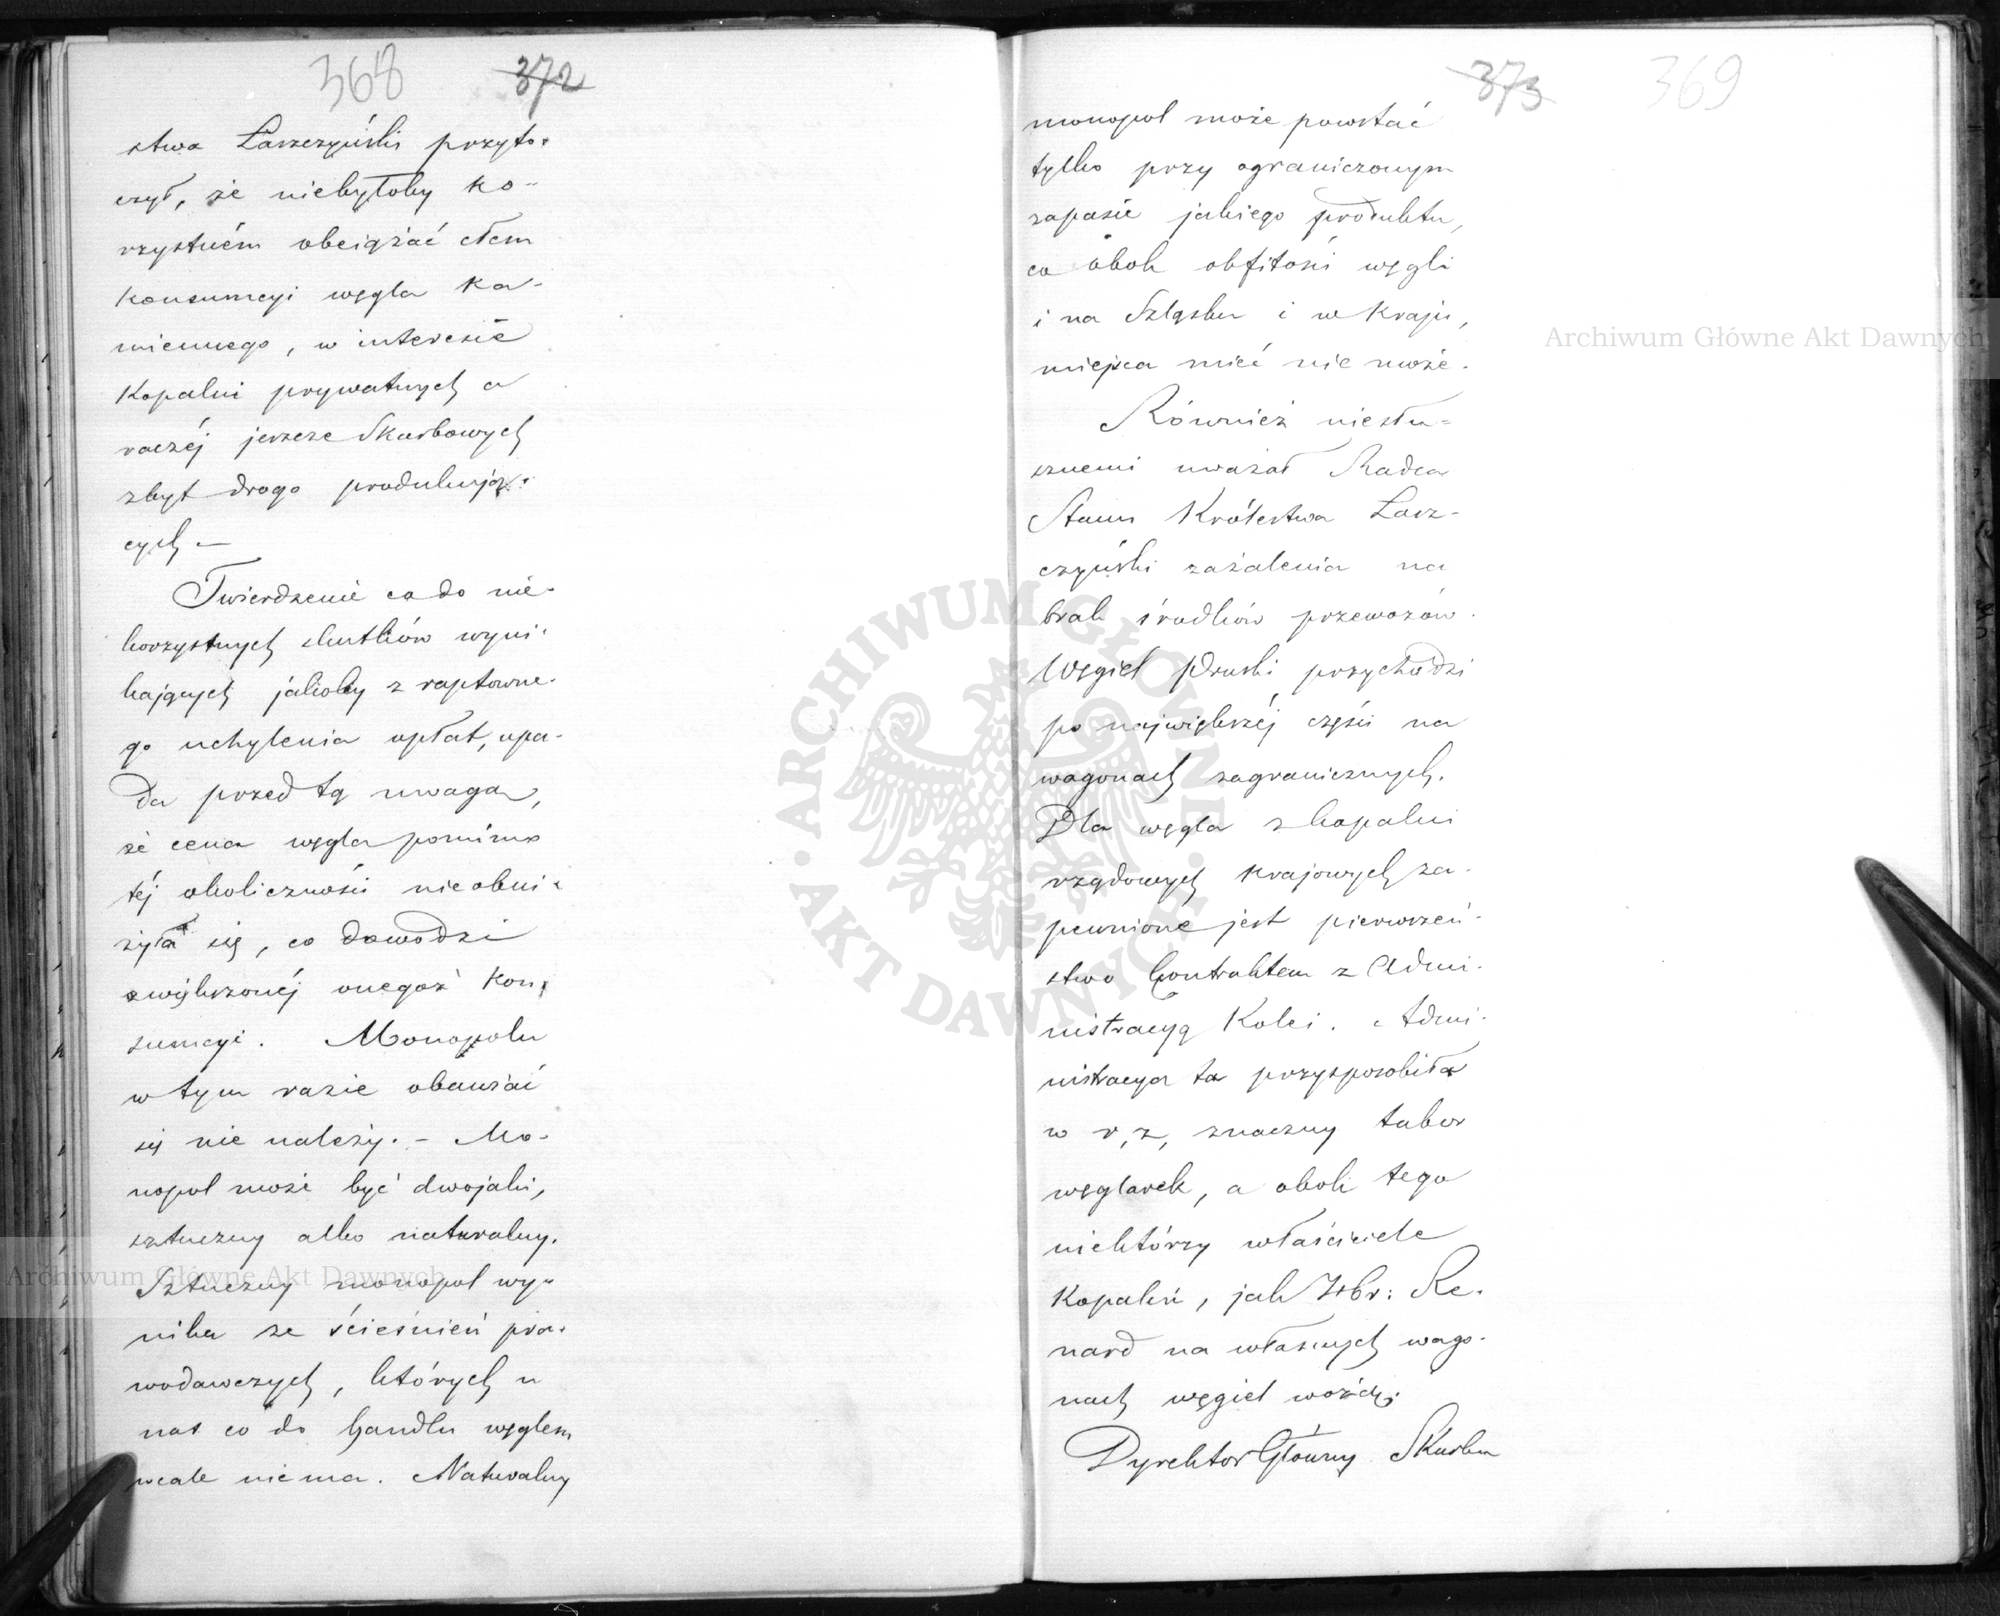 368 372
stwa Łaszczyński przyto-
czył, że niebyłoby ko-
rzystném obciążać cłem
konsumcyi węgla ka-
miennego, w interesie
Kopalni prywatnych a
raczéj jeszcze Skarbowych
zbyt drogo produkują-
cych —
Twierdzenie co do nie-
korzystnych skutków wyni-
kających jakoby z raptowne-
go uchylenia opłat, upa-
da przed tą uwagą,
że cena węgla pomimo
téj okoliczności nie obni-
żyła się, co dowodzi
zwiększonéj onegoż kon-
sumcyi. Monopolu
w tym razie obawiać
się nie należy. – Mo-
nopol może być dwojaki,
sztuczny albo naturalny.
Sztuczny monopol wy-
nika ze ścieśnień pra-
wodawczych, których u
nas co do handlu węglem
wcale niema. Naturalny
373 369
monopol może powstać
tylko przy ograniczonym
zapasie jakiego produktu,
co obok obfitości węgli
i na Szląsku i w Kraju,
miejsca mieć nie może.
Również niesłu-
sznemi uważał Radca
Stanu Królestwa Łasz-
czyński zażalenia na
brak środków przewozów.
Węgiel Pruski przychodzi
po największéj części na
wagonach zagranicznych.
Dla węgla z kopalni
rządowych krajowych za-
pewnione jest pierwszeń-
stwo Contraktem z Admi-
nistracyą Kolei. Admi-
nistracya ta przysposobiła
w r, z, znaczny tabor
węglarek, a obok tego
niektórzy właściciele
Kopalń, jak Hbr: Re-
nard na własnych wago-
nach węgiel wożą.
Dyrektor Główny Skarbu
Archiwum Główne Akt Dawnych
Archiwum Główne Akt Dawnych
ARCHIWUM GŁÓWNE AKT DAWNYCH